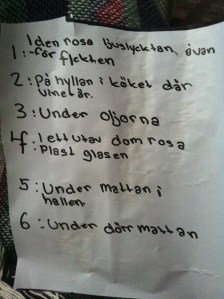 I den rosa ljuslycktan, ovan
1: -för flekten
2: På hyllan i köket där
vinet är.
3: Under oljorna
4: I ett utav dom rosa
Plast glasen
5: Under mattan i
hallen
6: Under dörr mattan